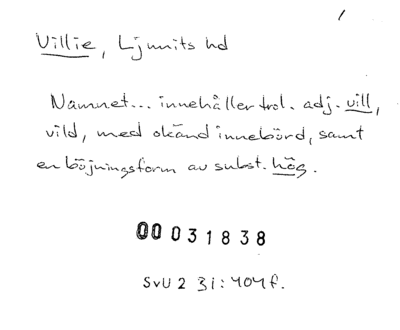 Villie, Ljunits hd
Namnet... innehåller trol. adj. vill,
vild, med okänd innebörd, samt
en böjningsform av subst. hög.
00 031838
SvU 2 31: 404 f.